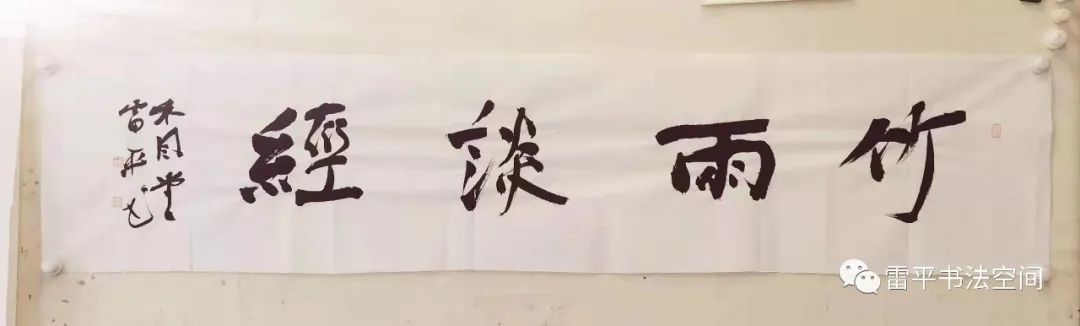 竹雨談經
禾風堂
雷平書
雷平书法空间